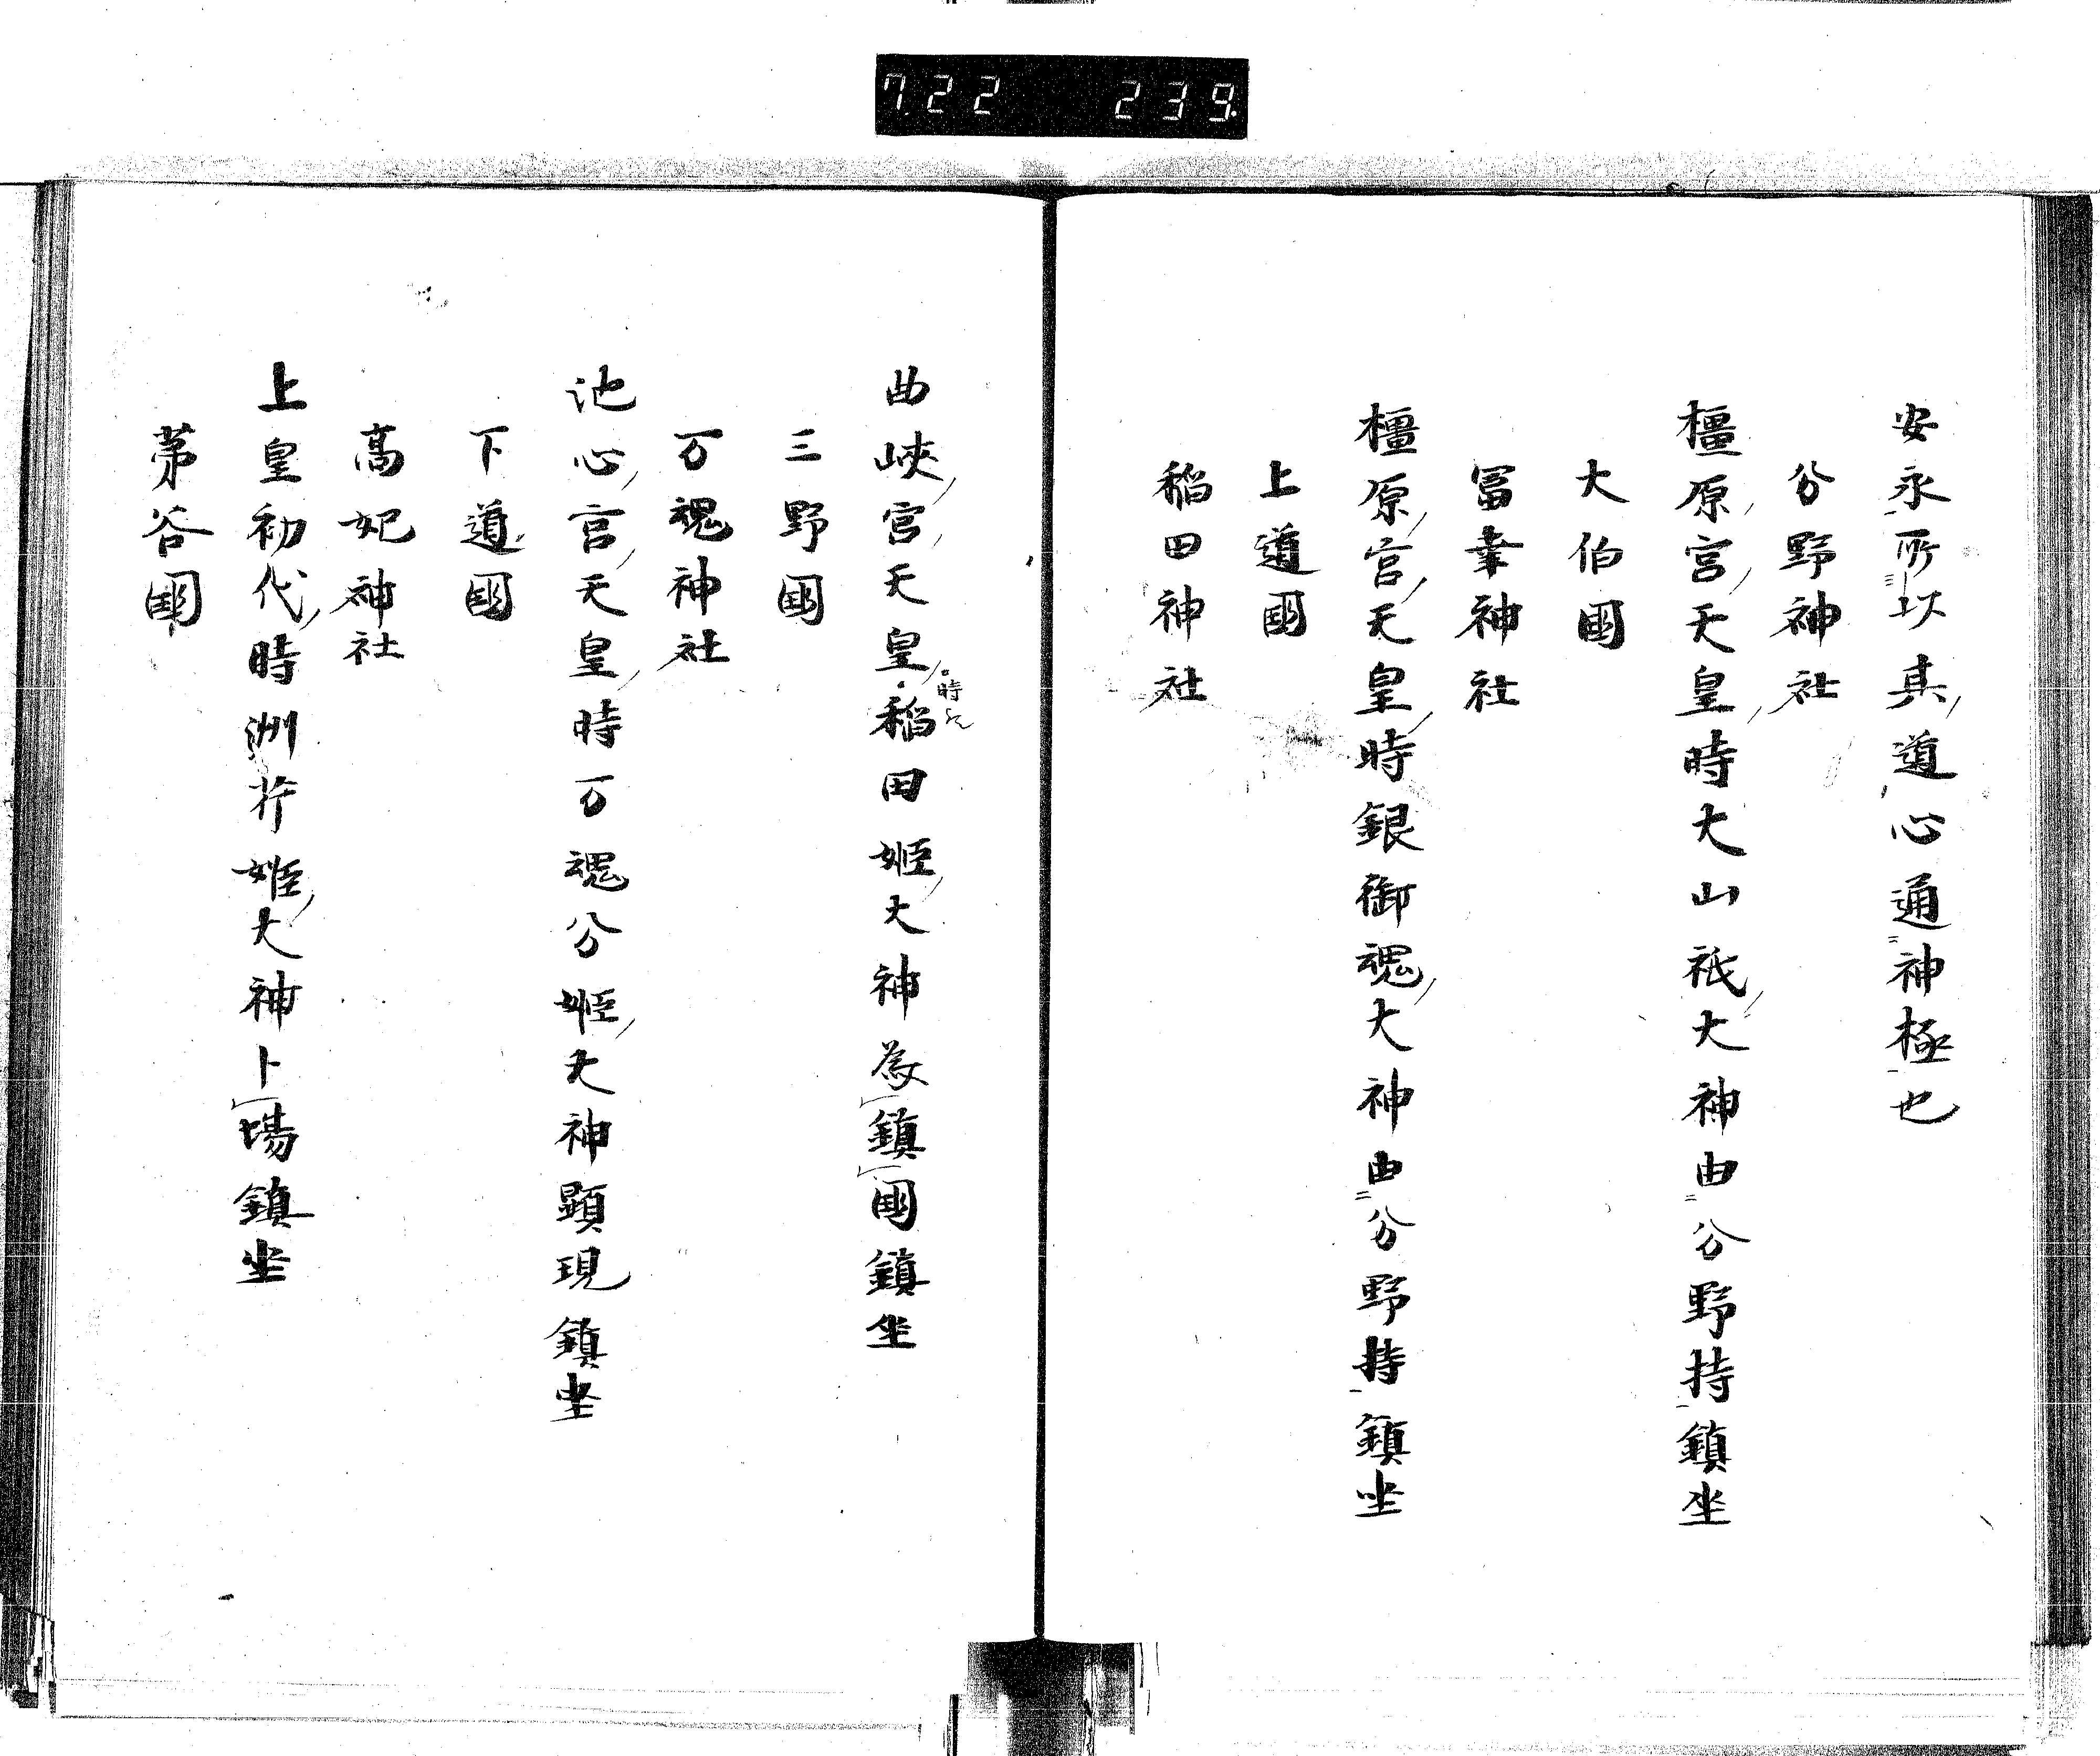 7.22 239.
安永所以其道心通神極也
分野神社
橿原宮天皇時大山祇大神由分野持鎮坐
大伯國
冨幸神社
橿原宮天皇時銀御魂大神由分野持鎮坐
上道國
稲田神社
曲峽宮天皇稲田姬大神為鎮國鎮坐
時
三野國
万魂神社
池心宮天皇時万魂分姬大神顕現鎮坐
下道國
髙妃神社
上皇初代時洲姬大神卜場鎮坐
谷國